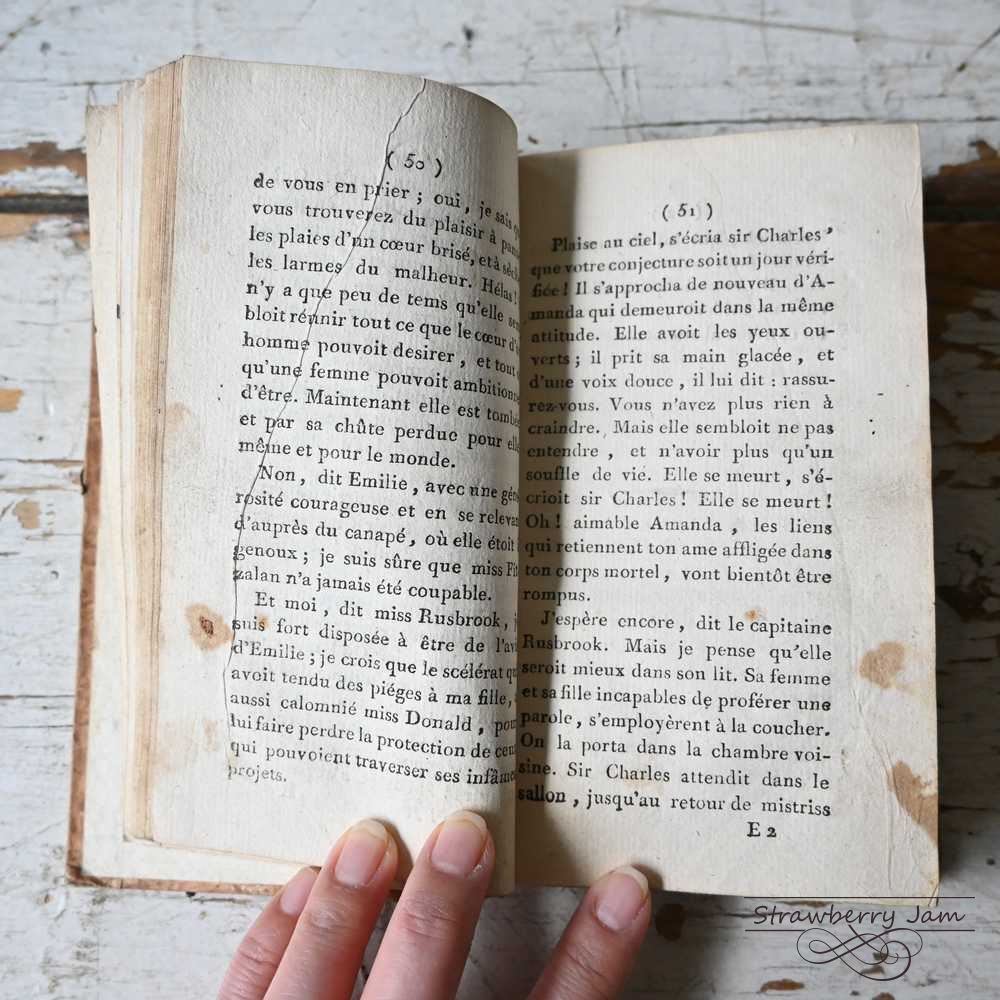 ( 50 )
de vous en prier ; oui, je sais
vous trouverez du plaisir à
les plaies d'un cœur brisé, et à
les larmes du malheur. Hélas !
n'y a que peu de tems qu'elle
bloit réunir tout ce que le cœur
homme pouvoit desirer, et tout
qu'une femme pouvoit
d'être. Maintenant elle est
et par sa chûte perdue pour
même et pour le monde.
Non, dit Emilie, avec une
rosité courageuse et en se
d'auprès du canapé, où elle étoit
genoux ; je suis sûre que miss
zalan n'a jamais été coupable.
Et moi, dit miss Rusbrook,
suis fort disposée à être de
d'Emilie ; je crois que le scélérat
avoit tendu des piéges à ma fille,
aussi calomnié miss Donald,
lui faire perdre la protection de
qui pouvoient traverser ses
projets.
( 51 )
Plaise au ciel, s'écria sir Charles,
que votre conjecture soit un jour véri-
fiée ! Il s'approcha de nouveau d'A-
manda qui demeuroit dans la même
attitude. Elle avoit les yeux ou-
verts ; il prit sa main glacée, et
d'une voix douce, il lui dit : rassu-
rez-vous. Vous n'avez plus rien à
craindre. Mais elle sembloit ne pas
entendre, et n'avoir plus qu'un
souffle de vie. Elle se meurt, s'é-
crioit sir Charles ! Elle se meurt !
Oh ! aimable Amanda, les liens
qui retiennent ton ame affligée dans
ton corps mortel, vont bientôt être
rompus.
J'espère encore, dit le capitaine
Rusbrook. Mais je pense qu'elle
seroit mieux dans son lit. Sa femme
et sa fille incapables de proférer une
parole, s'employèrent à la coucher.
On la porta dans la chambre voi-
sine. Sir Charles attendit dans le
sallon, jusqu'au retour de mistriss
E 2
Strawberry Jam